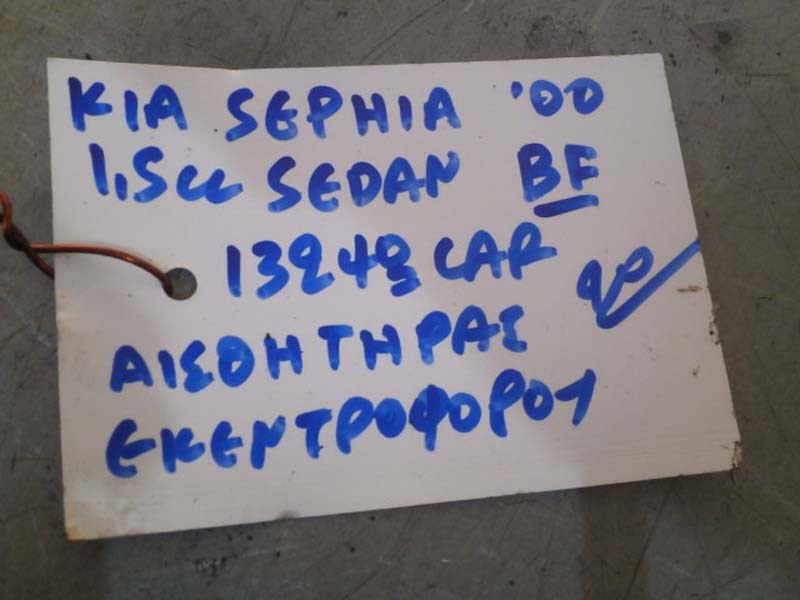 KIA SEPHIA '00
1,5cc SEDAN BF
13248 CAR
ΑΙΣΘΗΤΗΡΑΣ
ΕΚΕΝΤΡΟΦΟΡΟΥ